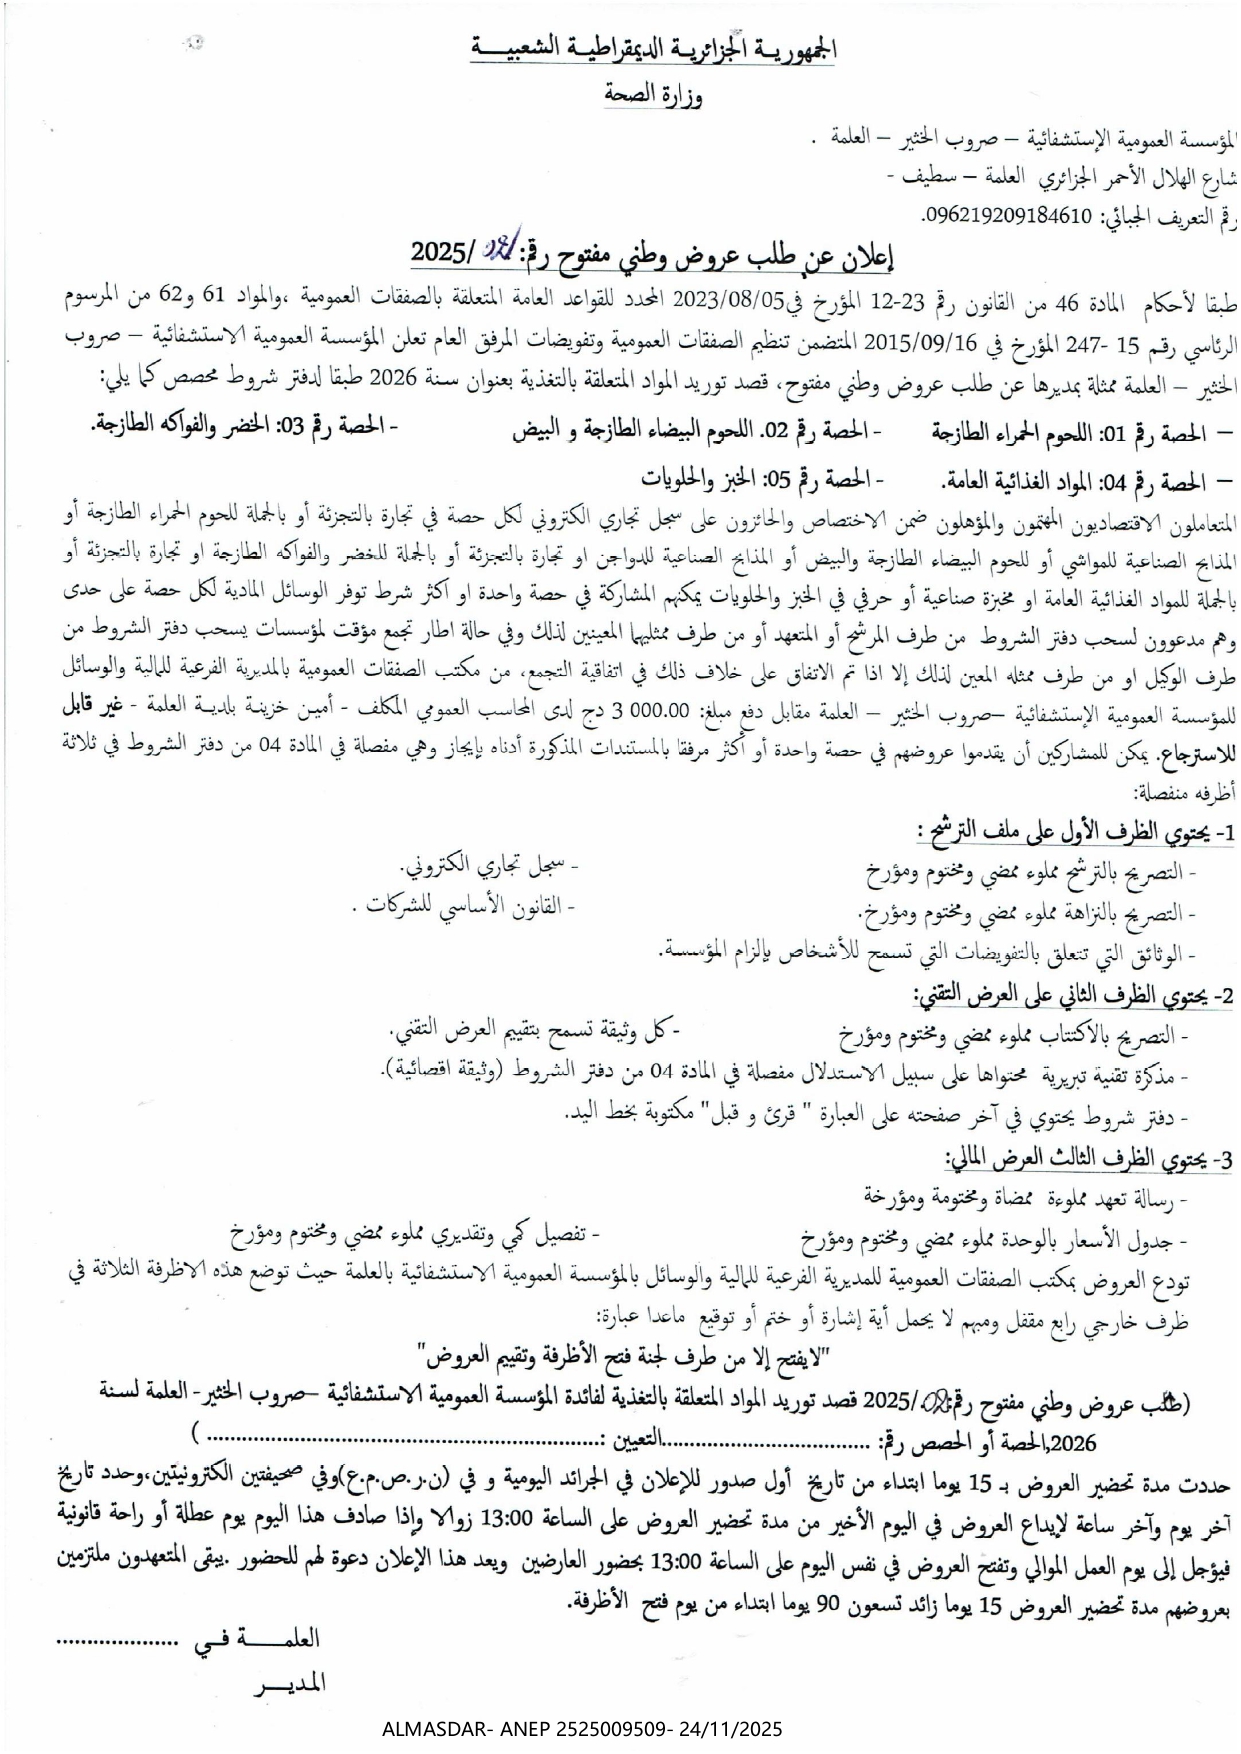 الجمهورية الجزائرية الديمقراطية الشعبية
وزارة الصحة
المؤسسة العمومية الإستشفائية – صروب الخثير – العلمة .
شارع الهلال الأحمر الجزائري العلمة – سطيف -
رقم التعريف الجبائي: 096219209184610.
إعلان عن طلب عروض وطني مفتوح رقم: /2025
طبقا لأحكام المادة 46 من القانون رقم 23-12 المؤرخ في2023/08/05 المحدد للقواعد العامة المتعلقة بالصفقات العمومية ،والمواد 61 و62 من المرسوم
الرئاسي رقم 15 -247 المؤرخ في 2015/09/16 المتضمن تنظيم الصفقات العمومية وتفويضات المرفق العام تعلن المؤسسة العمومية الاستشفائية – صروب
الخثير – العلمة ممثلة بمديرها عن طلب عروض وطني مفتوح، قصد توريد المواد المتعلقة بالتغذية بعنوان سنة 2026 طبقا لدفتر شروط محصص كما يلي:
– الحصة رقم 01: اللحوم الحمراء الطازجة - الحصة رقم 02. اللحوم البيضاء الطازجة و البيض - الحصة رقم 03: الخضر والفواكه الطازجة.
– الحصة رقم 04: المواد الغذائية العامة. - الحصة رقم 05: الخبز والحلويات
المتعاملون الاقتصاديون المهتمون والمؤهلون ضمن الاختصاص والحائزون على سجل تجاري الكتروني لكل حصة في تجارة بالتجزئة أو بالجملة للحوم الحمراء الطازجة أو
المذابح الصناعية للمواشي أو للحوم البيضاء الطازجة والبيض أو المذابح الصناعية للدواجن او تجارة بالتجزئة أو بالجملة للخضر والفواكه الطازجة او تجارة بالتجزئة أو
بالجملة للمواد الغذائية العامة او مخبزة صناعية أو حرفي في الخبز والحلويات يمكنهم المشاركة في حصة واحدة او اكثر شرط توفر الوسائل المادية لكل حصة على حدى
وهم مدعوون لسحب دفتر الشروط من طرف المرشح أو المتعهد أو من طرف ممثليها المعينين لذلك وفي حالة اطار تجمع مؤقت لمؤسسات يسحب دفتر الشروط من
طرف الوكيل او من طرف ممثله المعين لذلك إلا اذا تم الاتفاق على خلاف ذلك في اتفاقية التجمع، من مكتب الصفقات العمومية بالمديرية الفرعية للمالية والوسائل
للمؤسسة العمومية الإستشفائية –صروب الخثير – العلمة مقابل دفع مبلغ: 3 000.00 دج لدى المحاسب العمومي المكلف - أمين خزينة بلدية العلمة - غير قابل
للاسترجاع. يمكن للمشاركين أن يقدموا عروضهم في حصة واحدة أو أكثر مرفقا بالمستندات المذكورة أدناه بإيجاز وهي مفصلة في المادة 04 من دفتر الشروط في ثلاثة
أظرفه منفصلة:
1- يحتوي الظرف الأول على ملف الترشح :
- التصريح بالترشح مملوء ممضي ومختوم ومؤرخ - سجل تجاري الكتروني.
- التصريح بالنزاهة مملوء ممضي ومختوم ومؤرخ. - القانون الأساسي للشركات .
- الوثائق التي تتعلق بالتفويضات التي تسمح للأشخاص بإلزام المؤسسة.
2- يحتوي الظرف الثاني على العرض التقني:
- التصريح بالاكتتاب مملوء ممضي ومختوم ومؤرخ -كل وثيقة تسمح بتقييم العرض التقني.
- مذكرة تقنية تبريرية محتواها على سبيل الاستدلال مفصلة في المادة 04 من دفتر الشروط (وثيقة اقصائية).
- دفتر شروط يحتوي في آخر صفحته على العبارة " قرئ و قبل" مكتوبة بخط اليد.
3- يحتوي الظرف الثالث العرض المالي:
- رسالة تعهد مملوءة ممضاة ومختومة ومؤرخة
- جدول الأسعار بالوحدة مملوء ممضي ومختوم ومؤرخ - تفصيل كمي وتقديري مملوء ممضي ومختوم ومؤرخ
تودع العروض بمكتب الصفقات العمومية للمديرية الفرعية للمالية والوسائل بالمؤسسة العمومية الاستشفائية بالعلمة حيث توضع هذه الاظرفة الثلاثة في
ظرف خارجي رابع مقفل ومبهم لا يحمل أية إشارة أو ختم أو توقيع ماعدا عبارة:
"لايفتح إلا من طرف لجنة فتح الأظرفة وتقييم العروض"
(طلب عروض وطني مفتوح رقم: /2025 قصد توريد المواد المتعلقة بالتغذية لفائدة المؤسسة العمومية الاستشفائية –صروب الخثير- العلمة لسنة
2026,الحصة أو الحصص رقم: ....................................التعيين :.................................................................... )
حددت مدة تحضير العروض بـ 15 يوما ابتداء من تاريخ أول صدور للإعلان في الجرائد اليومية و في (ن.ر.ص.م.ع)وفي صحيفتين الكترونيتين،وحدد تاريخ
آخر يوم وآخر ساعة لإيداع العروض في اليوم الأخير من مدة تحضير العروض على الساعة 13:00 زوالا وإذا صادف هذا اليوم يوم عطلة أو راحة قانونية
فيؤجل إلى يوم العمل الموالي وتفتح العروض في نفس اليوم على الساعة 13:00 بحضور العارضين ويعد هذا الإعلان دعوة لهم للحضور .يبقى المتعهدون ملتزمين
بعروضهم مدة تحضير العروض 15 يوما زائد تسعون 90 يوما ابتداء من يوم فتح الأظرفة.
العلمة في .....................
المدير
ALMASDAR- ANEP 2525009509- 24/11/2025